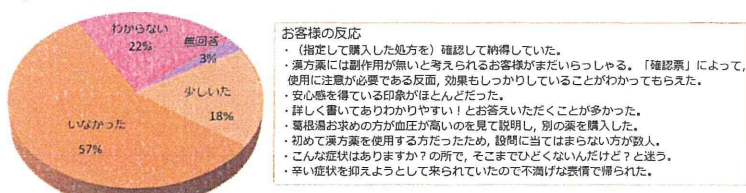 わからない
22%
無回答
3%
少しいた
18%
いなかった
57%
お客様の反応
・（指定して購入した処方を）確認して納得していた。
・漢方薬には副作用が無いと考えられるお客様がまだいらっしゃる。「確認票」によって,
使用に注意が必要である反面, 効果もしっかりしていることがわかってもらえた。
・安心感を得ている印象がほとんどだった。
・詳しく書いてありわかりやすい！とお答えいただくことが多かった。
・葛根湯お求めの方が血圧が高いのを見て説明し, 別の薬を購入した。
・初めて漢方薬を使用する方だったため, 設問に当てはまらない方が数人。
・こんな症状はありますか？の所で, そこまでひどくないんだけど？と迷う。
・辛い症状を抑えようとして来られていたので不満げな表情で帰られた。